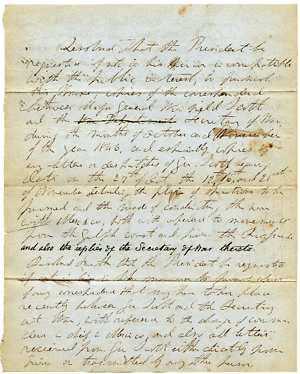 Resolved that the President be
requested if not in his opinion incompatible
with the public interest, to furnish
this House, copies of the correspondence
between Major General Winfield Scott
and the War Department Secretary of War
during the months of October and November
of the year 1846, and especially copies
any letters or despatches of Gen. Scott
dated on the 27th of the 12, 16, and 21st
of November detailing the plan of operations to be
pursued and the mode of conducting the war
with Mexico, both with reference to movements
from the Gulph coast and from the
and also the replies of the Secretary of War thereto.
Resolved further that the President be requested
of any correspondence that may have taken place
recently between Gen Scott and the Secretary
of War with reference to the change of
in chief in Mexico, and also all letters
received from Gen Scott either directly from
him or transmitted by any other person